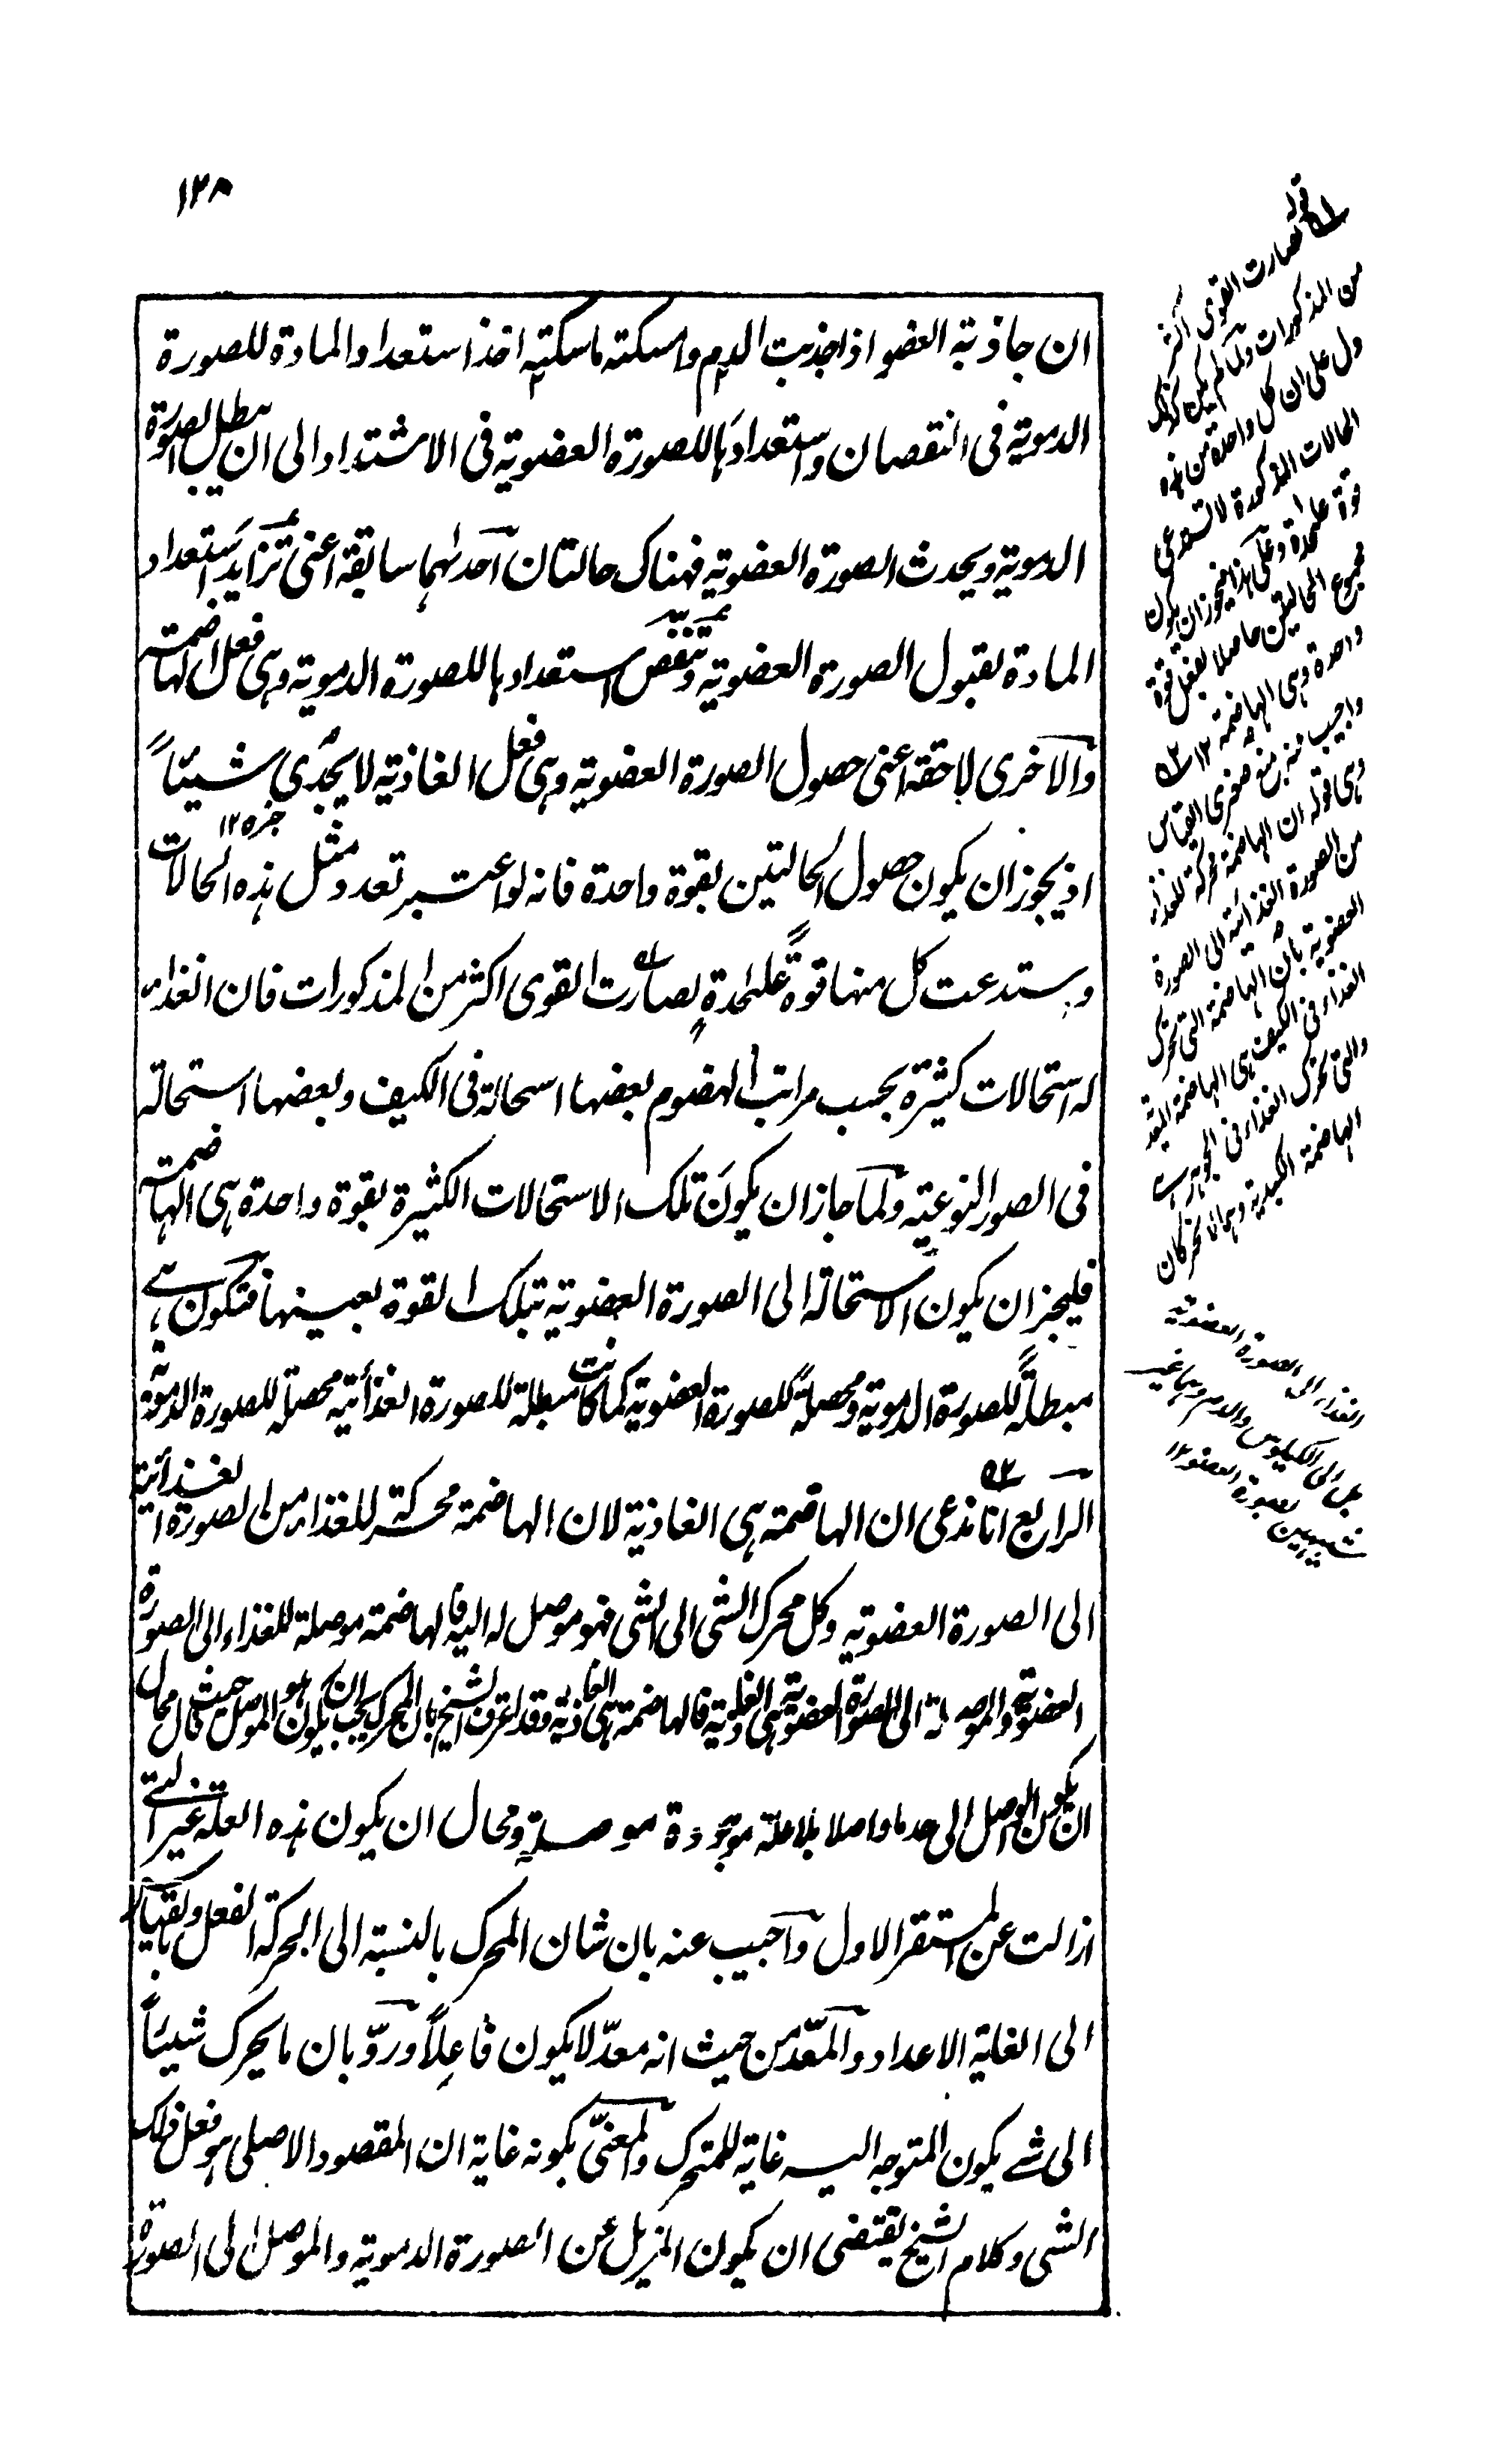 ١٣٨
ان جاذبة العضو اذا جذبت الدم وامسكته ماسكته اخذ استعداد المادة للصورة
الدموية فى النقصان واستعدادها للصورة العضوية فى الاشتداد الى ان يبطل الصورة
الدموية ويحدث الصورة العضوية فهناك حالتان احدٰهما سابقة اعنى تزايد استعداد
المادة لقبول الصورة العضوية وتنقص استعدادها للصورة الدموية وهى فعل الهاضمة
والاخرى لاحقة اعنى حصول الصورة العضوية وهى فعل الغاذية لا يجدى شيئاً
خبره ١٢
اذ يجوز ان يكون حصول الحالتين بقوة واحدة فانه لو اعتبر تعدد مثل هذه الحالات
واستدعت كل منها قوةً علٰحدةٍ لصارت القوى اكثر من المذكورات فان الغذاء
له استحالات كثيرة بحسب مراتب الهضوم بعضها اسحالة فى الكيف وبعضها استحالة
فى الصور النوعية ولما جاز ان يكون تلك الاستحالات الكثيرة بقوة واحدة هى الهاضمة
فليجز ان يكون الاستحالة الى الصورة العضوية بتلك القوة بعينها فتكون هى
مبطلةً للصورة الدموية ومحصلةً للصورة العضوية كما كانت مبطلة للصورة الغذائية محصلة للصورة الدموية
الرابع انا ندعى ان الهاضمة هى الغاذية لان الهاضمة محركة للغذاء من الصورة الغذائية
الى الصورة العضوية وكل محرك الشى الى الشى فهو موصل له اليه فالهاضمة موصلة للغذاء الى الصورة
العضوية والموصلة الى الصورة العضوية هى الغاذية فالهاضمة هى الغاذية وقد اعترف الشيخ بان المحرك يجب ان يكون هو الموصل حيث قال محال
ان يكون الواصل الى حد ما واصلا بلا علة موجودة موصلة ومحال ان يكون هذه العلة غير التى
ازالت عن المستقر الاول واجيب عنه بان شان المحرك بالنسبة الى الحركة الفعل وبالقياس
الى الغاية الاعداد والمعدّ من حيث انه معدّ لا يكون فاعلاً وردّ بان ما يحرك شيئاً
الى شے يكون المتوجه اليه غاية للمتحرك والمعنىّ بكونه غاية ان المقصود الاصلى هو فعل ذلك
الشى وكلام الشيخ يقتضى ان يكون المزيل عن الصورة الدموية والموصل الى الصورة
قوله لصارت القوى اكثر
من المذكورات ولما لم يكن كذلك
دل على ان كل واحدة من هذه
الحالات المذكورة لا تستدعى
قوة علٰحدة وعلى هذا فيجوز ان يكون
مجموع الحالتين حاصلا بفعل قوة
واحدة وهى الهاضمة ١٢
واجيب عنه بمنع صغرى القياس
وهى قوله ان الهاضمة محركة للغذاء
من الصورة الغذائية الى الصورة
العضوية بان الهاضمة التى تحرك
الغذاء فى الكيف هى الهاضمة المعدية
والتى تحرك الغذاء فى الجوهر هى
الهاضمة الكبدية وهما لا تحركان
الغذاء الى الصورة العضوية
بل الى الكيلوس والدم وهما غير
شبيهين بصورة العضو ١٢